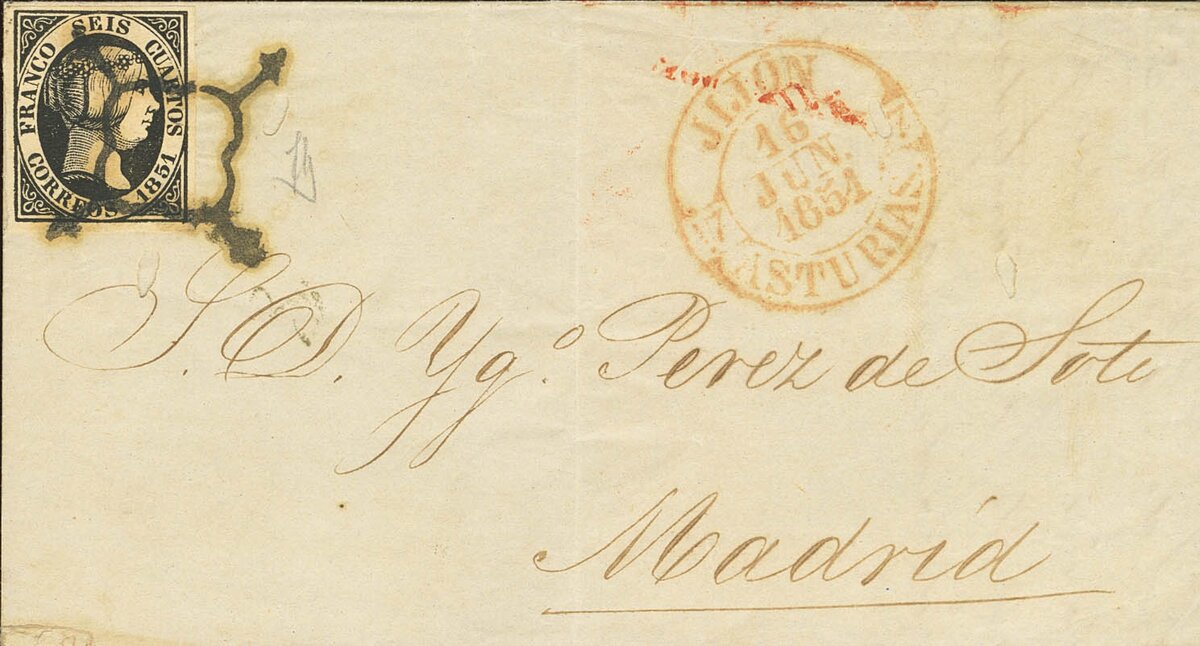 FRANCO SEIS CUARTOS
CORREOS 1851
JIJON
16
JUN.
1851
ASTURIAS.
S. D. Ygº. Perez de Soto
Madrid